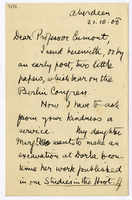 Aberdeen
21.10.08
Dear Professor Cumont,
I send herewith, or by
an early post, two little
papers, which bear on the
Berlin Congress.
Now I have to ask
from your kindness a
service. My daughter
wants to make an
excavation at Dorla &
tinue her work published
in our Studies in the Hist. of